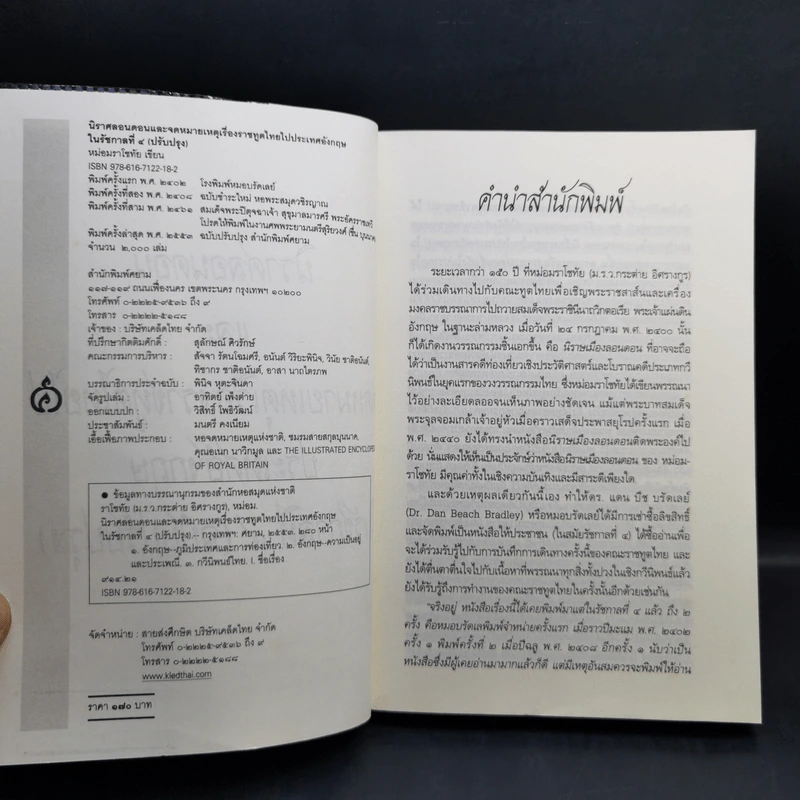 นิราศลอนดอนและจดหมายเหตุเรื่องราชทูตไทยไปประเทศอังกฤษ
ในรัชกาลที่ ๔ (ปรับปรุง)
หม่อมราโชทัย เขียน
ISBN 978-616-7122-18-2
พิมพ์ครั้งแรก พ.ศ. ๒๔๐๒ โรงพิมพ์หมอบรัดเลย์
พิมพ์ครั้งที่สอง พ.ศ. ๒๔๐๘ ฉบับชำระใหม่ หอพระสมุดวชิรญาณ
พิมพ์ครั้งที่สาม พ.ศ. ๒๔๖๑ สมเด็จพระปิตุจฉาเจ้า สุขุมาลมารศรี พระอัครราชเทวี
โปรดให้พิมพ์ในงานศพพระยามนตรีสุริยวงศ์ (ชื่น บุนนาค)
พิมพ์ครั้งล่าสุด พ.ศ. ๒๕๕๓ ฉบับปรับปรุง สำนักพิมพ์ศยาม
จำนวน ๒,๐๐๐ เล่ม
สำนักพิมพ์ศยาม
๑๑๗-๑๑๙ ถนนเฟื่องนคร เขตพระนคร กรุงเทพฯ ๑๐๒๐๐
โทรศัพท์ ๐-๒๒๒๕-๙๕๓๖ ถึง ๙
โทรสาร ๐-๒๒๒๒-๕๑๘๘
เจ้าของ : บริษัทเคล็ดไทย จำกัด
ที่ปรึกษากิตติมศักดิ์ : สุลักษณ์ ศิวรักษ์
คณะกรรมการบริหาร : สัจจา รัตนโฉมศรี, อนันต์ วิริยะพินิจ, วินัย ชาติอนันต์,
ทิชากร ชาติอนันต์, อาสา นาถไตรภพ
บรรณาธิการประจำฉบับ : พินิจ หุตะจินดา
จัดรูปเล่ม : อาทิตย์ เพ็งด่าย
ออกแบบปก : วิสิทธิ์ โพธิวัฒน์
ประชาสัมพันธ์ : มนตรี คงเนียม
เอื้อเฟื้อภาพประกอบ : หอจดหมายเหตุแห่งชาติ, ชมรมสายสกุลบุนนาค,
คุณอเนก นาวิกมูล และ THE ILLUSTRATED ENCYCLOPED
OF ROYAL BRITAIN
● ข้อมูลทางบรรณานุกรมของสำนักหอสมุดแห่งชาติ
ราโชทัย (ม.ร.ว.กระต่าย อิศรางกูร), หม่อม.
นิราศลอนดอนและจดหมายเหตุเรื่องราชทูตไทยไปประเทศอังกฤษ
ในรัชกาลที่ ๔ (ปรับปรุง).-- กรุงเทพฯ: ศยาม, ๒๕๕๓. ๒๘๐ หน้า
๑. อังกฤษ-ภูมิประเทศและการท่องเที่ยว. ๒. อังกฤษ--ความเป็นอยู่
และประเพณี. ๓. กวีนิพนธ์ไทย. I. ชื่อเรื่อง
๙๑๔.๒๑
ISBN 978-616-7122-18-2
จัดจำหน่าย : สายส่งศึกษิต บริษัทเคล็ดไทย จำกัด
โทรศัพท์ ๐-๒๒๒๕-๙๕๓๖ ถึง ๙
โทรสาร ๐-๒๒๒๒-๕๑๘๘
www.kledthai.com
ราคา ๑๗๐ บาท
คำนำสำนักพิมพ์
ระยะเวลากว่า ๑๕๐ ปี ที่หม่อมราโชทัย (ม.ร.ว.กระต่าย อิศรางกูร)
ได้ร่วมเดินทางไปกับคณะทูตไทยเพื่อเชิญพระราชสาส์นและเครื่อง
มงคลราชบรรณาการไปถวายสมเด็จพระราชินีนาถวิกตอเรีย พระเจ้าแผ่นดิน
อังกฤษ ในฐานะล่ามหลวง เมื่อวันที่ ๒๔ กรกฎาคม พ.ศ. ๒๔๐๐ นั้น
ก็ได้เกิดงานวรรณกรรมชิ้นเอกขึ้น คือ นิราษเมืองลอนดอน ที่อาจจะถือ
ได้ว่าเป็นงานสารคดีท่องเที่ยวเชิงประวัติศาสตร์และโบราณคดีประเภทกวี
นิพนธ์ในยุคแรกของวงวรรณกรรมไทย ซึ่งหม่อมราโชทัยได้เขียนพรรณนา
ไว้อย่างละเอียดลออจนเห็นภาพอย่างชัดเจน แม้แต่พระบาทสมเด็จ
พระจุลจอมเกล้าเจ้าอยู่หัวเมื่อคราวเสด็จประพาสยุโรปครั้งแรก เมื่อ
พ.ศ. ๒๔๔๐ ยังได้ทรงนำหนังสือนิราษเมืองลอนดอนติดพระองค์ไป
ด้วย นั่นแสดงให้เห็นเป็นประจักษ์ว่าหนังสือนิราษเมืองลอนดอน ของ หม่อม-
ราโชทัย มีคุณค่าทั้งในเชิงความบันเทิงและมีสาระดีเพียงใด
และด้วยเหตุผลเดียวกันนี้เอง ทำให้ดร. แดน บีช บรัดเลย์
(Dr. Dan Beach Bradley) หรือหมอบรัดเลย์ได้มีการเช่าซื้อลิขสิทธิ์
และจัดพิมพ์เป็นหนังสือให้ประชาชน (ในสมัยรัชกาลที่ ๔) ได้ซื้ออ่านเพื่อ
จะได้ร่วมรับรู้ไปกับการบันทึกการเดินทางครั้งนี้ของคณะราชทูตไทย และ
ยังได้ตื่นตาตื่นใจไปกับเนื้อหาที่พรรณนาทุกสิ่งทั้งปวงในเชิงกวีนิพนธ์แล้ว
ยังได้รับรู้ถึงการทำงานของคณะราชทูตไทยในครั้งนั้นอีกด้วยเช่นกัน
“จริงอยู่ หนังสือเรื่องนี้ได้เคยพิมพ์มาแต่ในรัชกาลที่ ๔ แล้ว ถึง ๒
ครั้ง คือหมอบรัดเลพิมพ์จำหน่ายครั้งแรก เมื่อราวปีมะแม พ.ศ. ๒๔๐๒
ครั้ง ๑ พิมพ์ครั้งที่ ๒ เมื่อปีฉลู พ.ศ. ๒๔๐๘ อีกครั้ง ๑ นับว่าเป็น
หนังสือซึ่งมีผู้เคยอ่านมามากแล้วก็ดี แต่มีเหตุอันสมควรจะพิมพ์ให้อ่าน